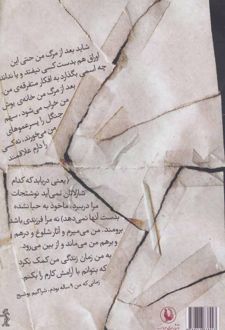 شاید بعد از مرگ من حتی این
اوراق هم بدست کسی نیفتد و یا ندانند
چه اسمی بگذارد به افکار متفرقه‌ی من
بعد از مرگ من خانه‌ی یوش
من خراب می‌شود، سهم
جنگل را پسرعموهای
من می‌خورند، نه کسی
را دارم علاقمند
(یعنی دریابد که کدام
شارلاتان نمی‌آید نوشتجات
مرا درببرد، ماخوذ به حیا نشده
بدست آنها نمی‌دهد) نه مرا فرزندی باشد
برومند. من می‌میرم و آثار شلوغ و درهم
و برهم من می‌ماند و از بین می‌رود.
به من زمان زندگی من کمک نکرد
که بتوانم با آرامش کارم را بکنم.
زمانی که من ۹ ساله بودم، شراگیم